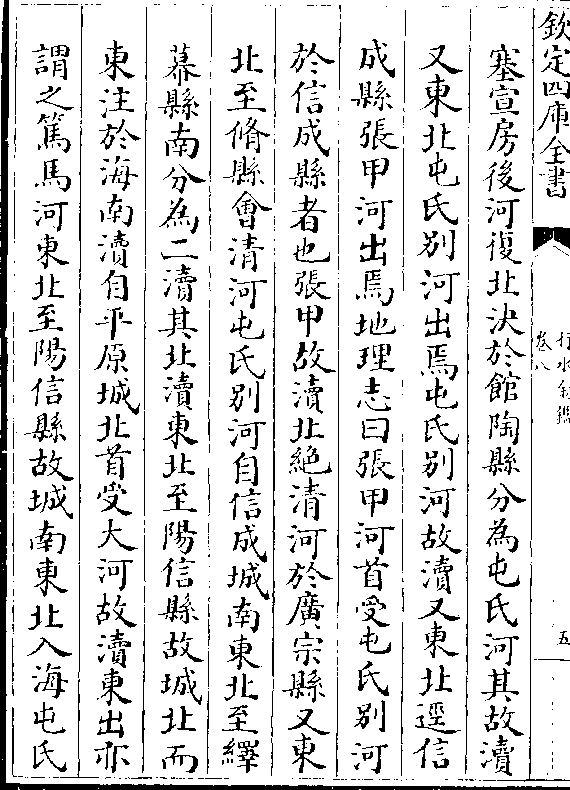 欽定四庫全書
行水金鑑
卷八
五
塞宣房後河復北決於館陶縣分為屯氏河其故瀆
又東北屯氏別河出焉屯氏別河故瀆又東北逕信
成縣張甲河出焉地理志曰張甲河首受屯氏別河
於信成縣者也張甲故瀆北絶清河於廣宗縣又東
北至脩縣會清河屯氏別河自信成城南東北至繹
幕縣南分為二瀆其北瀆東北至陽信縣故城北而
東注於海南瀆自平原城北首受大河故瀆東出亦
謂之篤馬河東北至陽信縣故城南東北入海屯氏